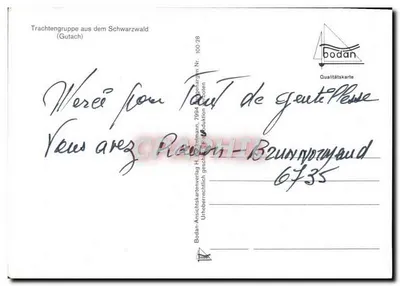 Trachtengruppe aus dem Schwarzwald
(Gutach)
bodan
Qualitätskarte
Merci pour Tant de gentillesse
Vous avez
6735
Bodan-Ansichtskartenverlag H. 7994 Nr. 100/28
Urheberrechtlich